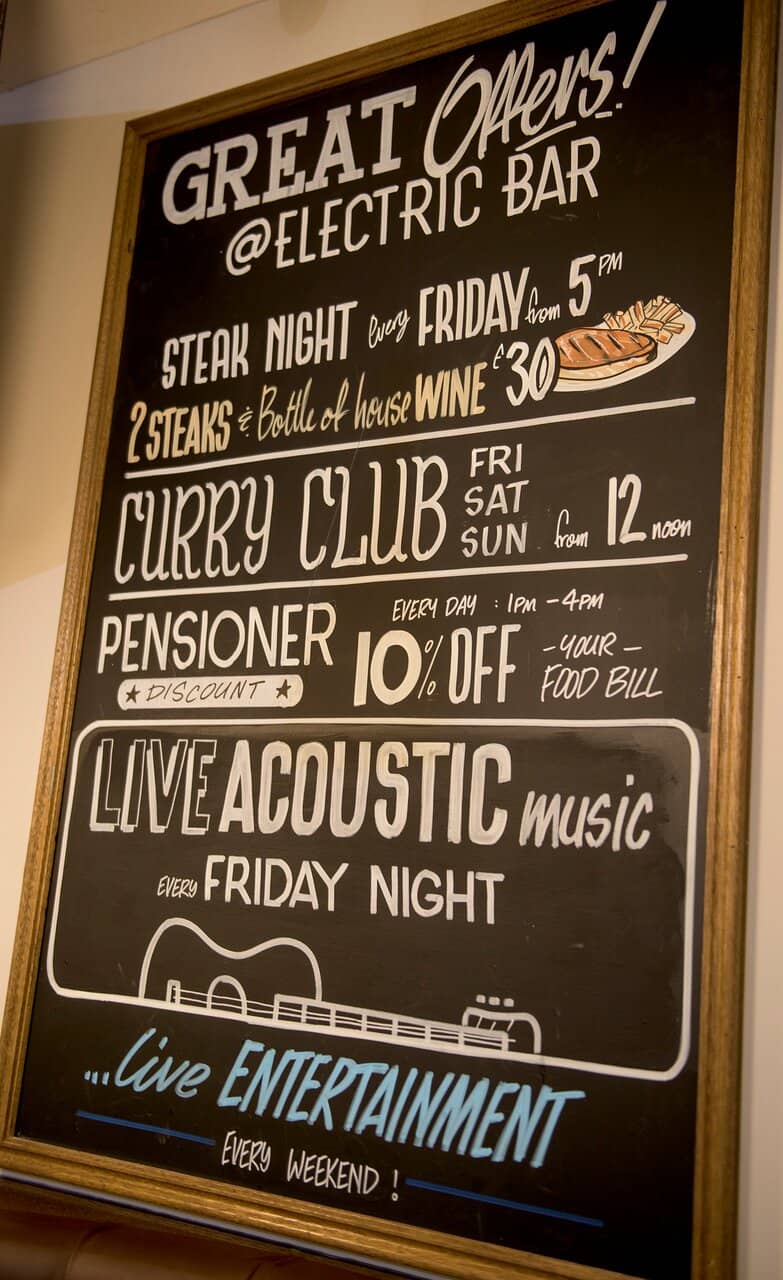 GREAT Offers!
@ELECTRIC BAR
STEAK NIGHT every FRIDAY from 5PM
2 STEAKS & Bottle of house WINE £30
CURRY CLUB FRI SAT SUN from 12 noon
PENSIONER DISCOUNT
EVERY DAY : 1PM - 4PM
10% OFF - YOUR - FOOD BILL
LIVE ACOUSTIC music
EVERY FRIDAY NIGHT
...Live ENTERTAINMENT
EVERY WEEKEND!